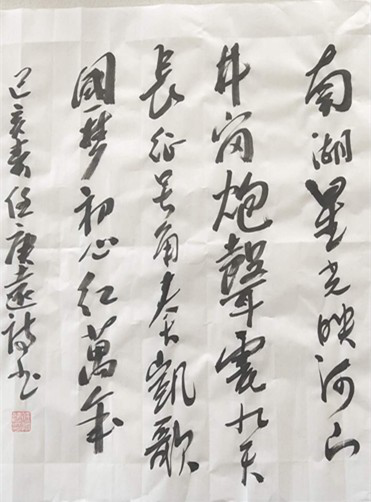 南湖星光映河山
井岗炮聲震九天
長征号角奏凱歌
國梦初心红萬年
己亥春任庚遠詩书